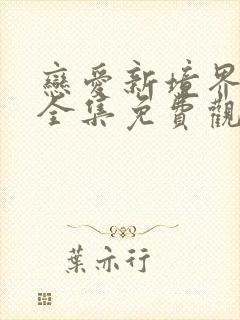 戀愛新境界
全集免費觀
葉亦行